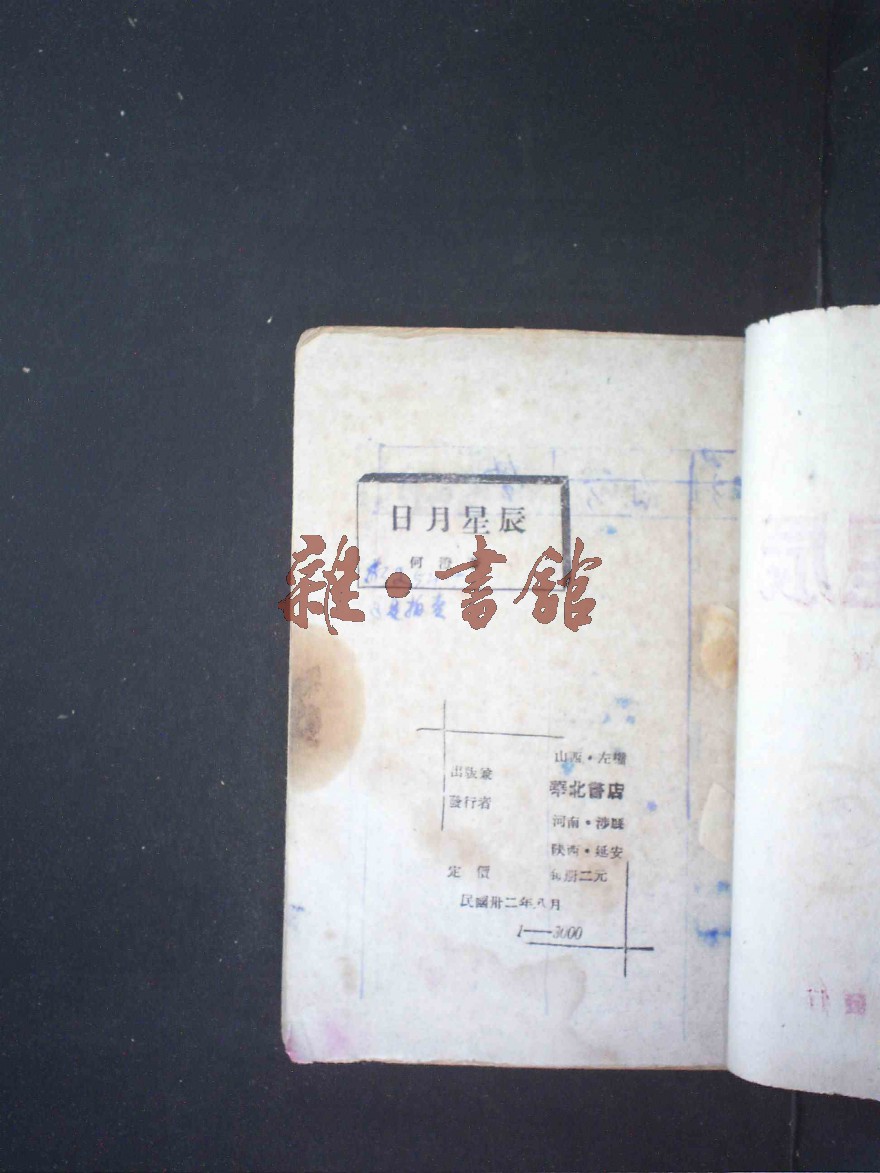 日月星辰
何澄
雜·書館
山西·左權
出版兼
發行者
華北書店
河南·涉縣
陝西·延安
定價 每册二元
民國卅二年八月
1——3000